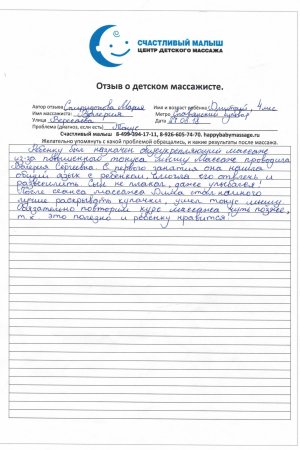 СЧАСТЛИВЫЙ МАЛЫШ
ЦЕНТР ДЕТСКОГО МАССАЖА
Отзыв о детском массажисте.
Автор отзыва Спиридонова Мария Имя и возраст ребенка Дмитрий, 4 мес
Имя массажиста: Валерия Метро Славянский бульвар
Улица Вересаева Дата
Проблема (диагноз, если есть) Тонус
Счастливый малыш 8-499-394-17-11, 8-926-605-74-70. happybabymassage.ru
Желательно упомянуть с какой проблемой обращались, и какие результаты после массажа.
Ребенку был назначен общеукрепляющий массаж
из-за повышенного тонуса мышц. Массаж проводила
Валерия Сергеевна. С первого занятия она нашла
общий язык с ребенком. Смогла его отвлечь и
развеселить. Сын не плакал, даже улыбался!
После сеанса массажа Дима стал намного
лучше раскрывать кулачки, ушел тонус мышц.
Обязательно повторим курс массажа чуть позже,
т.к. это полезно и ребенку нравится!